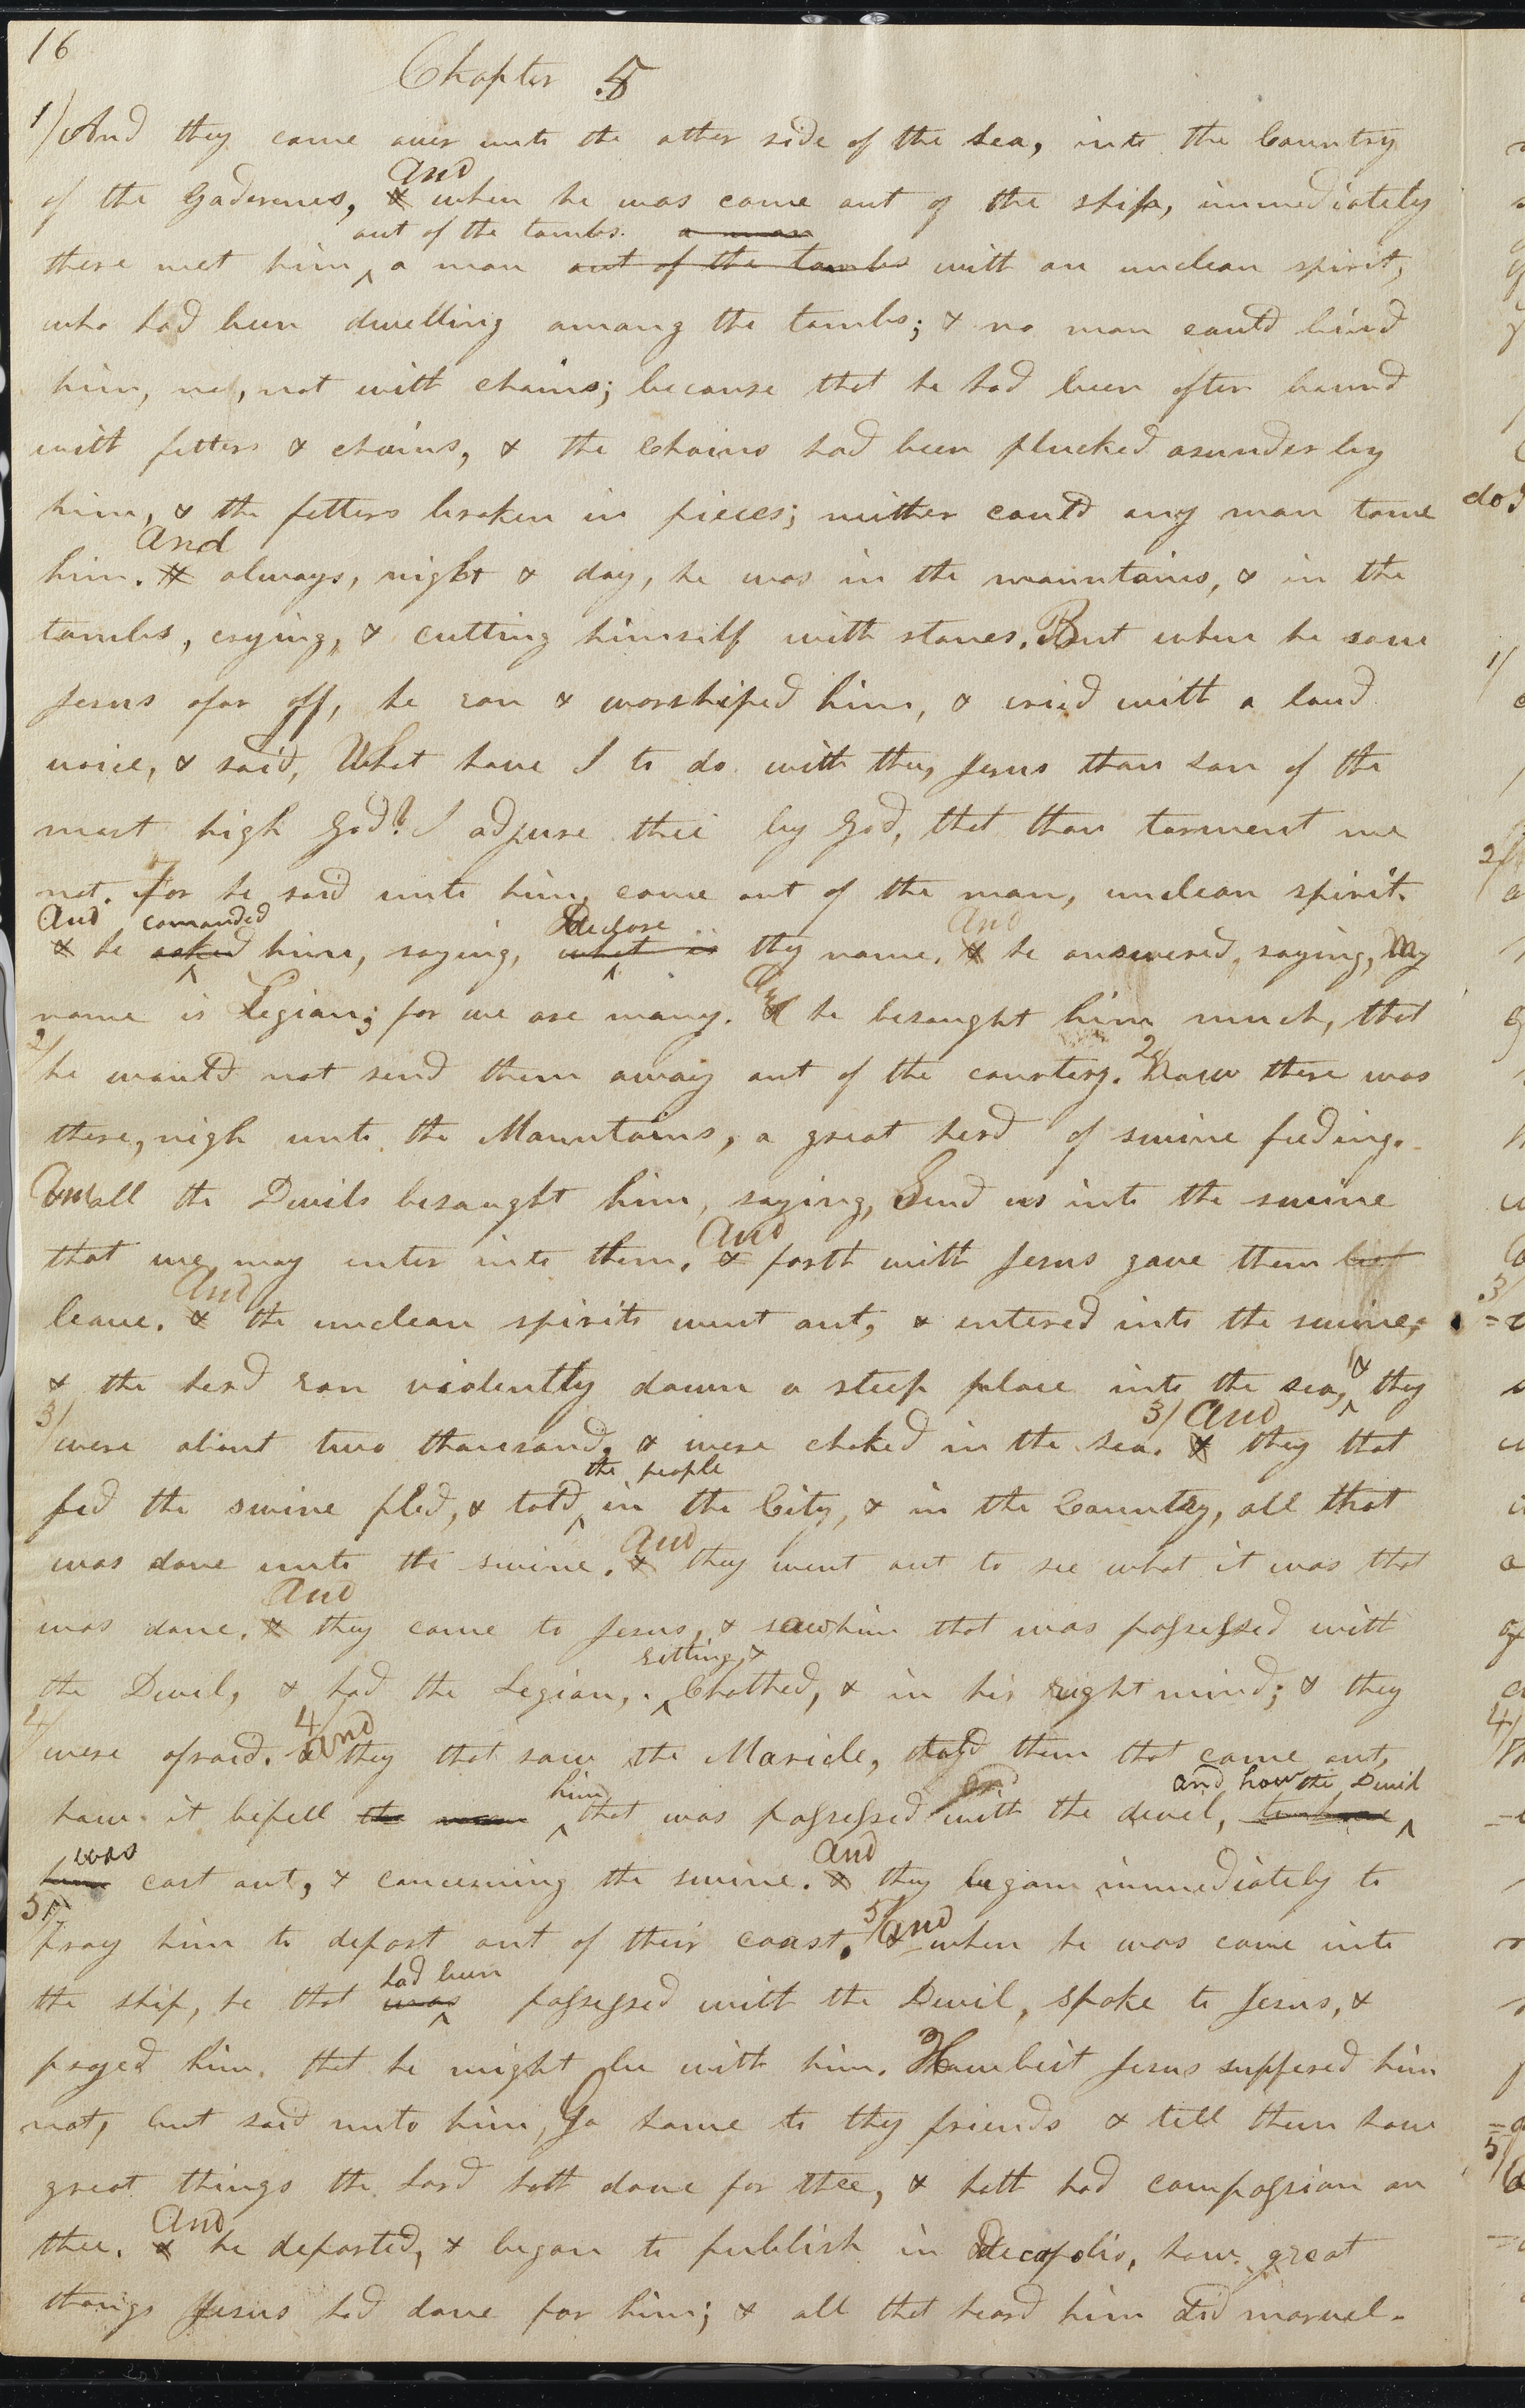 16
Chapter 5
1/ And they came over unto the other side of the Sea, into the Country
And
of the Gaderenes, & when he was come out of the ship, immediately
out of the tombs. a man
there met him a man out of the tombs with an unclean spirit,
who had been dwelling among the tombs; & no man could bind
him, no, not with chains; because that he had been often bound
with fetters & chains, & the Chains had been plucked asunder by
him, & the fetters broken in pieces; neither could any man tame
And
him. & always, night & day, he was in the mountains, & in the
tombs, crying, & cutting himself with stones. But when he saw
Jesus afar off, he ran & worshiped him, & cried with a loud
voice, & said, What have I to do with thee, Jesus thou Son of the
most high God? I adjure thee by God, that thou torment me
not. For he said unto him, come out of the man, unclean spirit.
And comanded Declare And
& he asked him, saying, what is thy name. & he answered, saying, My
And
name is Legion; for we are many. & he besought him much, that
2/ he would not send them away out of the country. 2/ Now there was
there, nigh unto the Mountains, a great herd of swine feeding.
And all the Devils besought him, saying, Send us into the swine
And
that we may enter into them. & forth with Jesus gave them
And
leave. & the unclean spirits went out, & entered into the swine;
& the herd ran violently down a steep place into the sea, & they
3/ And
3/ were about two thousand, & were choked in the Sea. & they that
the people
fed the swine fled, & told in the City, & in the Country, all that
And
was done unto the swine. & they went out to see what it was that
And
was done. & they come to Jesus, & saw him that was possessed with
sitting, &
the Devil, & had the Legion, Clothed, & in his right mind; & they
4/ were afraid. 4/ And they that saw the Maricle, told them that came out,
him and how the Devil
how it befell the man that was possessed with the devel,
was And
cast out, & concerning the swine. & they began immediately to
5/ pray him to depart out of their coast. 5/ And when he was come into
had been
the ship, he that was possessed with the Devil, spoke to Jesus, &
prayed him that he might be with him. Howbeit Jesus suffered him
not, but said unto him, Go home to thy friends & tell them how
great things the Lord hath done for thee, & hath had compassion on
And
thee. & he departed, & began to publish in Decapolis, how great
things Jesus had done for him; & all that heard him did marvel.